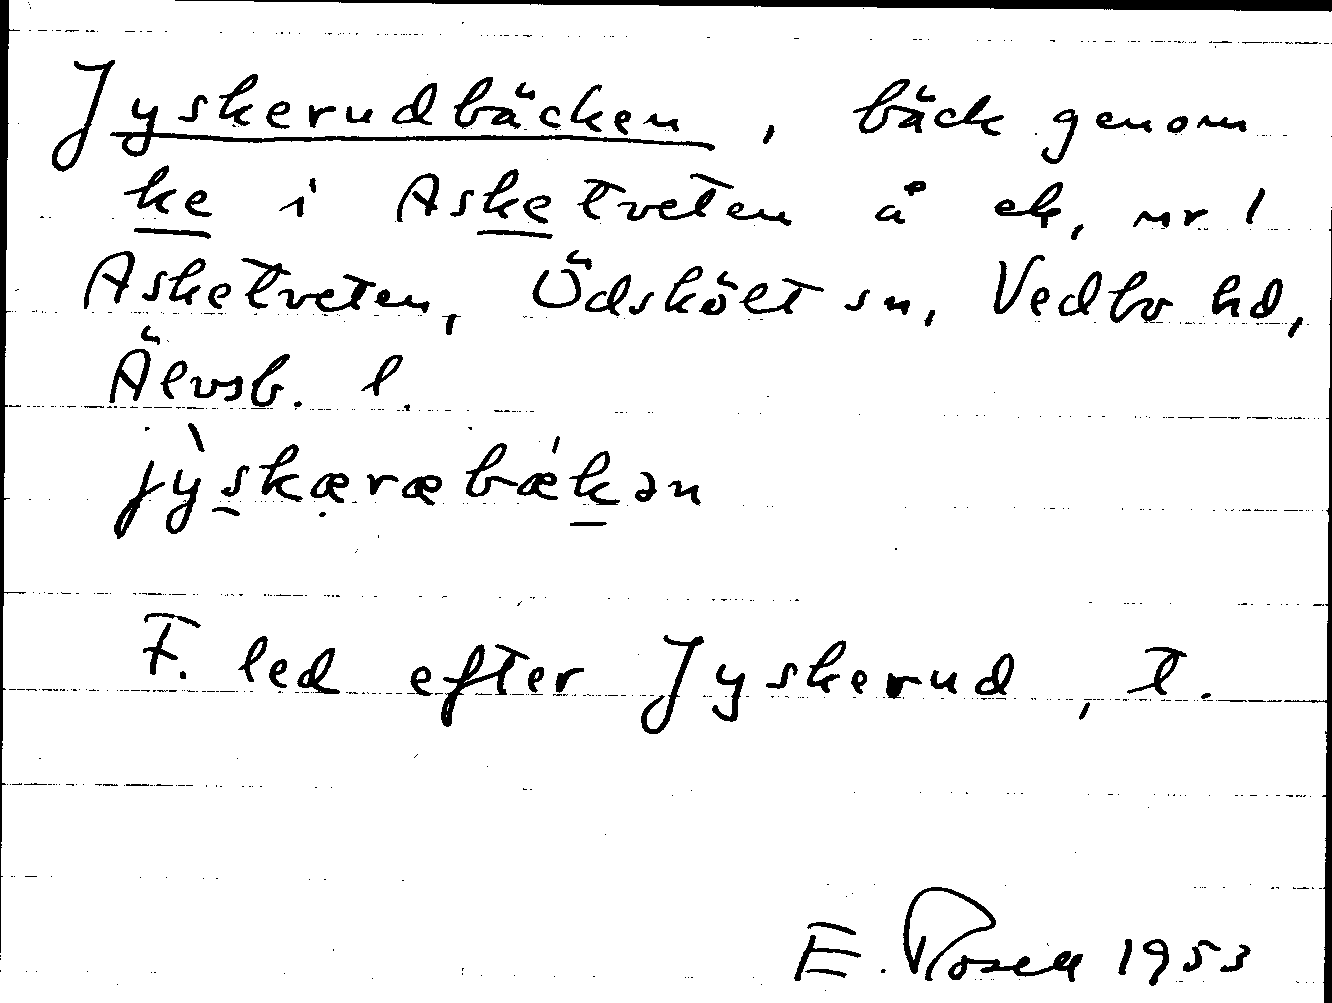 Jyskerudbäcken, bäck genom
ke i Asketveten å ek, nr 1
Asketveten, Ödskölt sn, Vedbo hd,
Älvsb. l.
jỳskæræbǽkən
F. led efter Jyskerud, t.
E. Rosell 1953